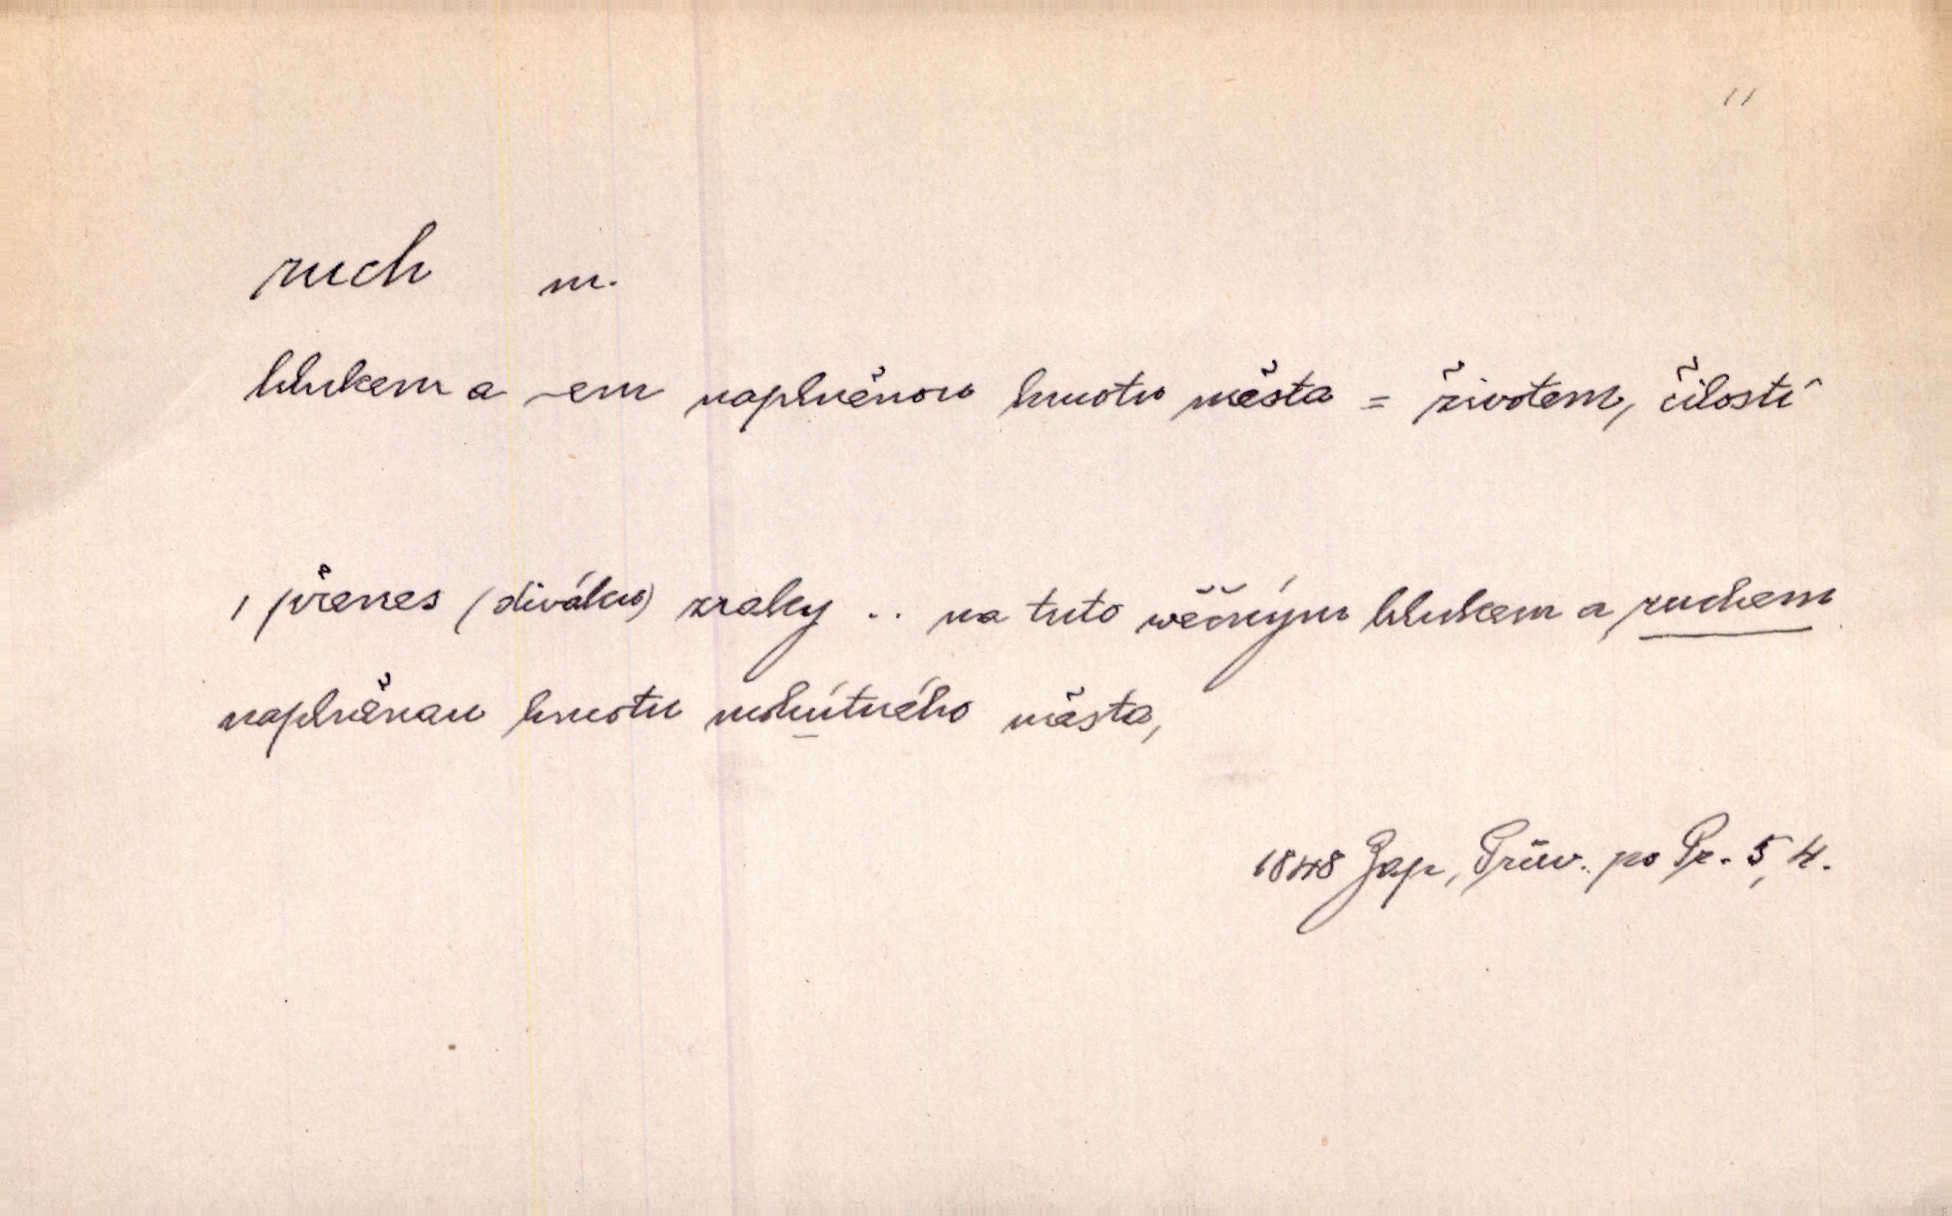 ruch m.
hlukem a -em naplněnou hmotu města = životem, čilostí
, přenes (diváku) zraky .. na tuto wěčným hlukem a ruchem
naplněnau hmotu mohútného města,
1848 Zap, Průw. po Pr. 5, 4.